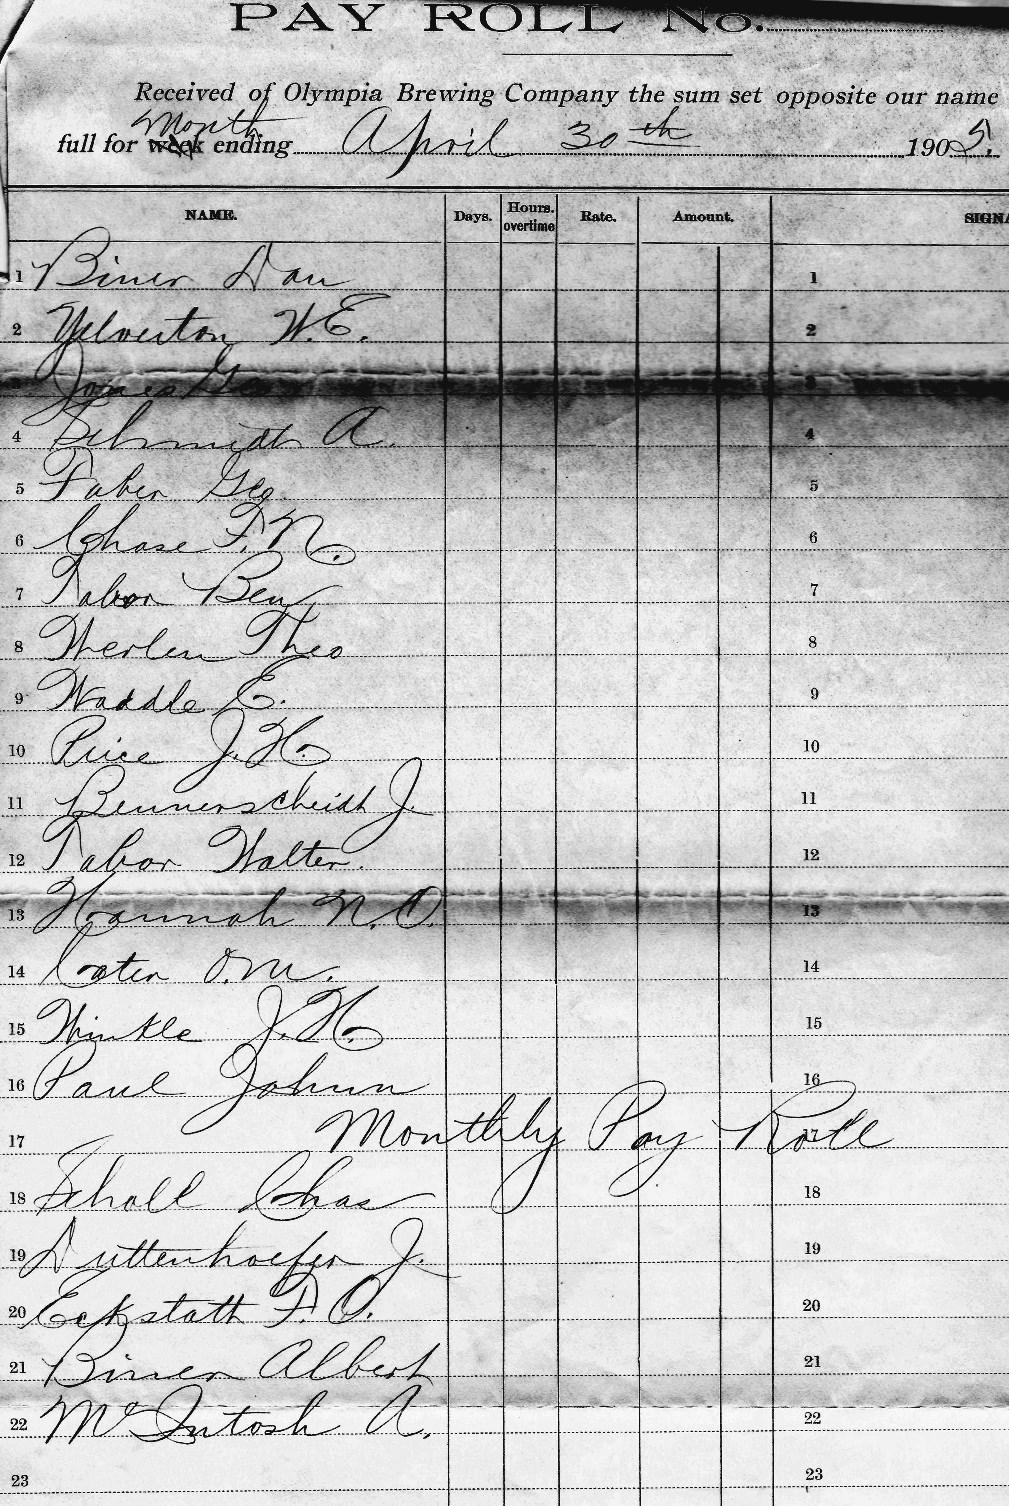 PAY ROLL No.
Received of Olympia Brewing Company the sum set opposite our name
Month
full for week ending April 30th 1905.
NAME. Days. Hours. overtime Rate. Amount. SIGNA
1 Biner Dan 1
2 Yelverton W.E. 2
3 Jones Geo 3
4 Schmidt A. 4
5 Faber Geo 5
6 Chase F.N. 6
7 Tabor Ben 7
8 Werlen Theo 8
9 Waddle E. 9
10 Price J.H. 10
11 Bennerscheidt J. 11
12 Tabor Walter. 12
13 Hannah N.O. 13
14 Coten O.M. 14
15 Winkle J.H. 15
16 Paul Johnn 16
17 Monthly Pay Roll 17
18 Scholl Chas 18
19 Duttenhoefer J. 19
20 Eckstatt F.O. 20
21 Biner Albert 21
22 McIntosh A. 22
23 23